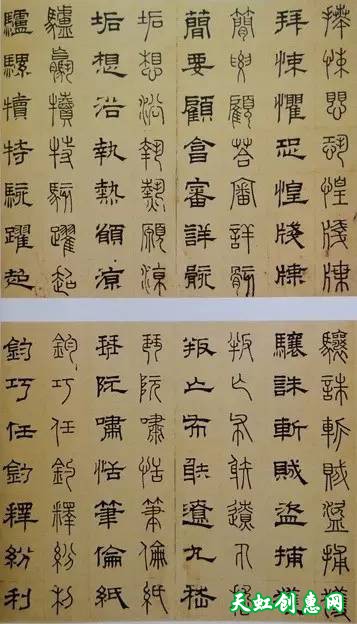 拜悚懼恐惶牋牒
拜悚懼恐惶牋牒
簡要顧答審詳骸
簡要顧答審詳骸
垢想浴執熱願涼
垢想浴執熱願涼
驢騾犢特駭躍超
驢騾犢特駭躍超
驤誅斬賊盜捕獲
驤誅斬賊盜捕獲
叛亡布射遼丸嵇
叛亡布射遼丸嵇
琴阮嘯恬筆倫紙
琴阮嘯恬筆倫紙
鈞巧任釣釋紛利
鈞巧任釣釋紛利
天虹创意网